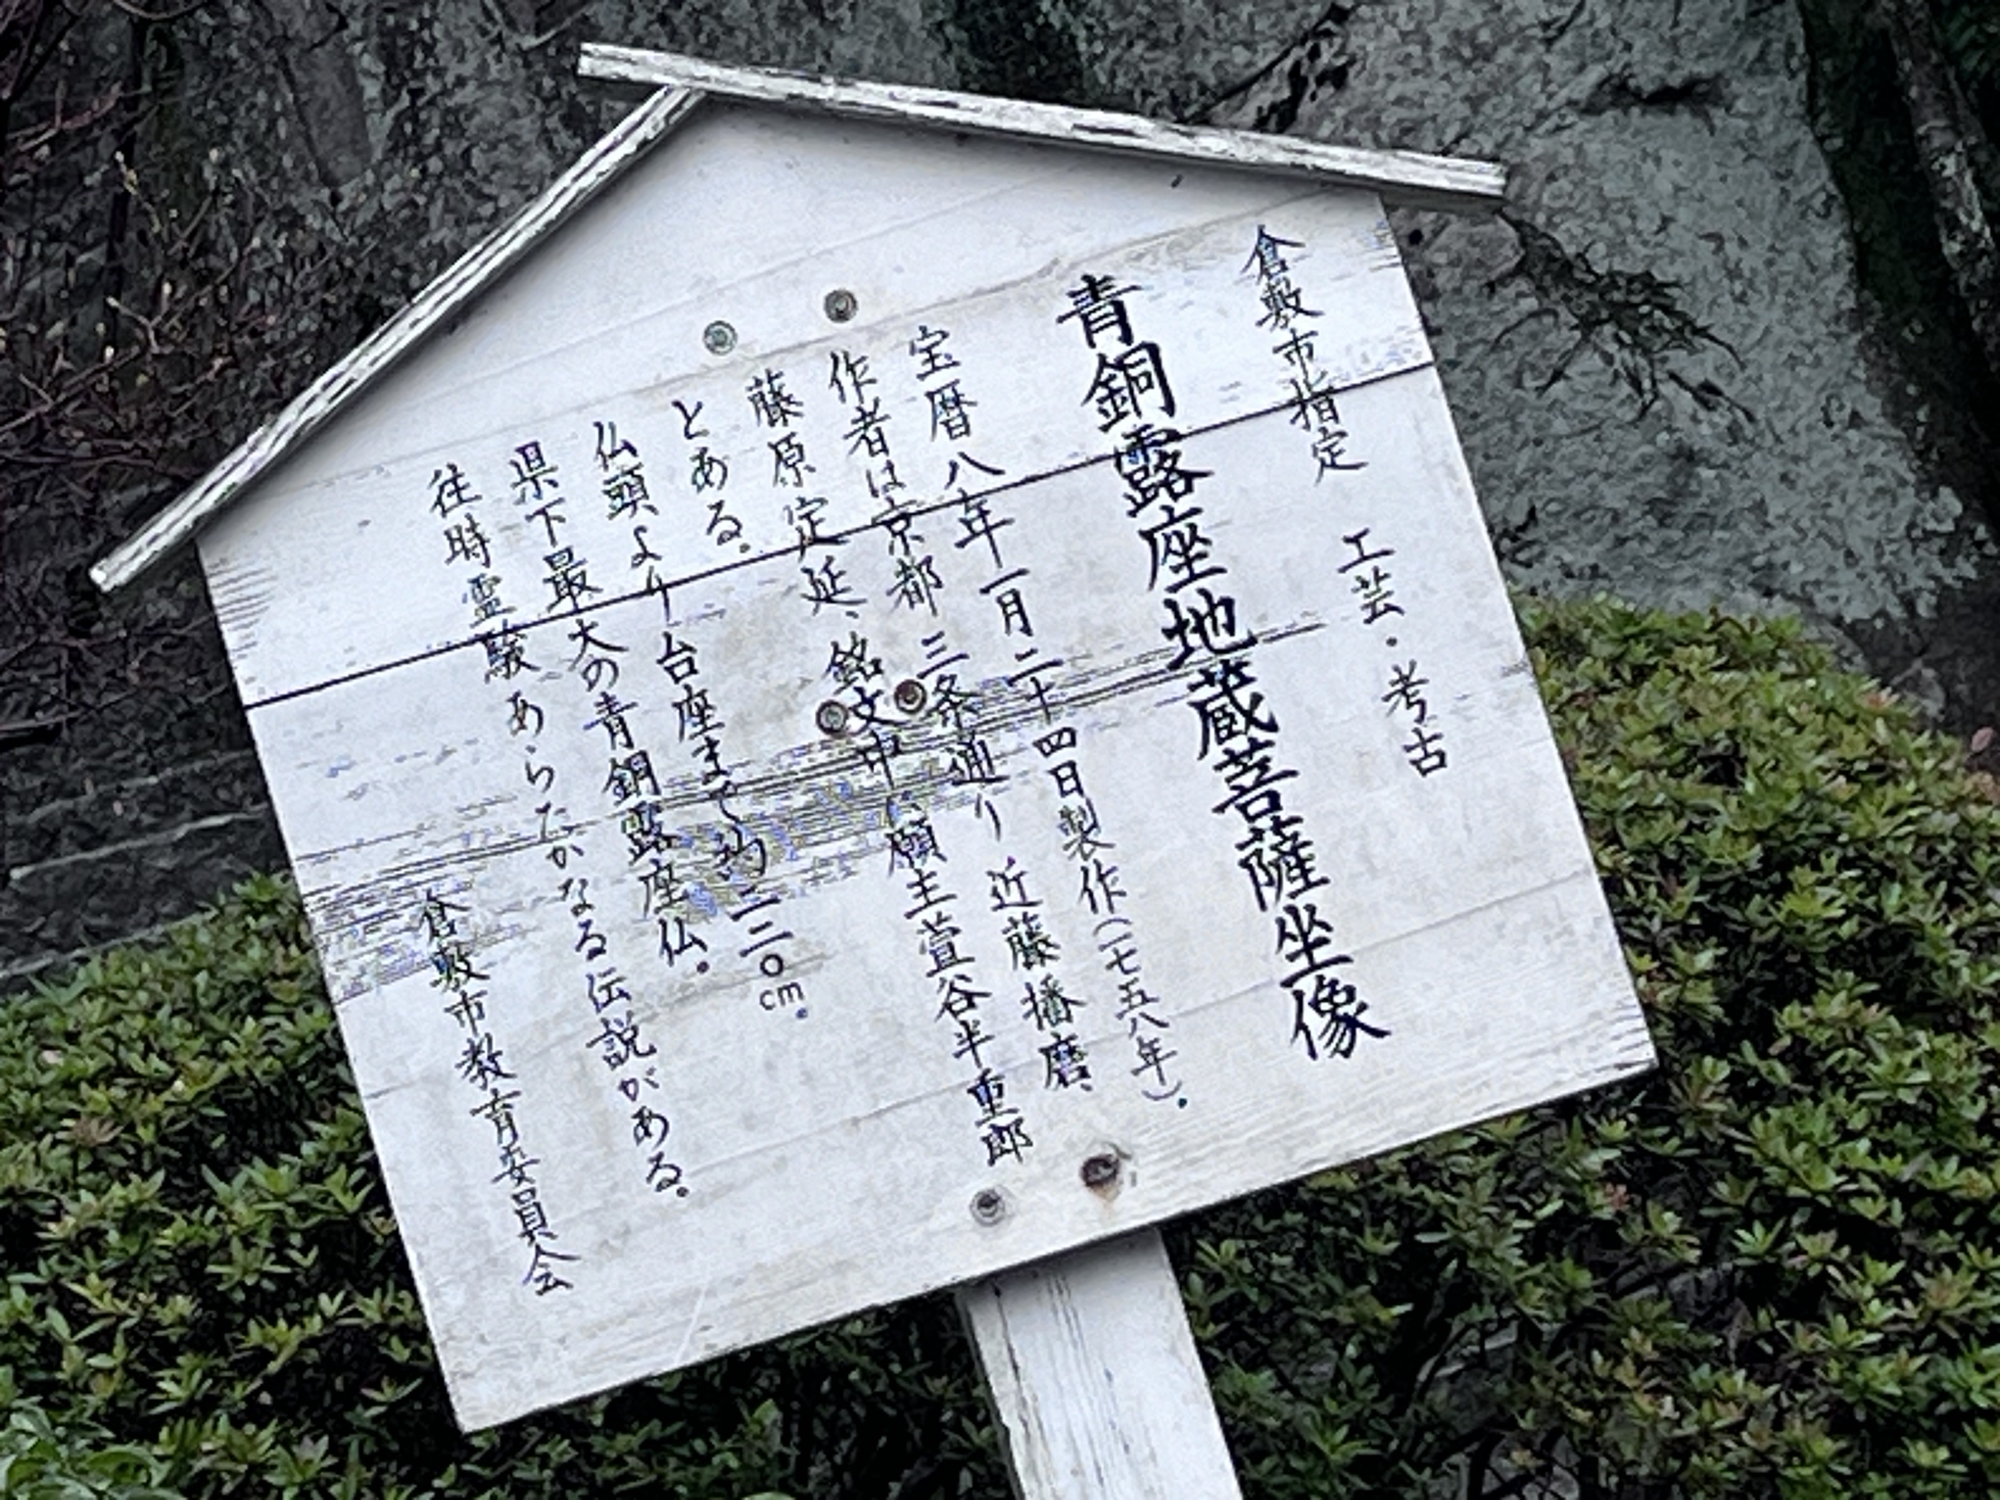 倉敷市指定 工芸・考古
青銅露座地蔵菩薩坐像
宝暦八年一月二十四日製作(一七五八年)。
作者は京都三条通り近藤播磨、
藤原定延、銘文中に願主萱谷半重郎
とある。
仏頭より台座まで約一二〇cm。
県下最大の青銅露座仏。
往時霊験あらたかなる伝説がある。
倉敷市教育委員会